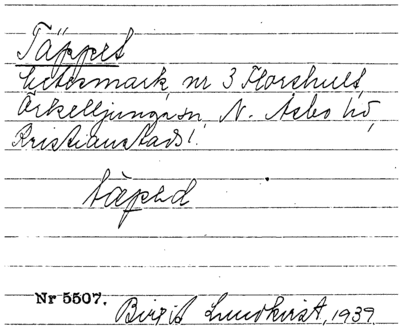 Täppet
betesmark nr 3 Florshult,
Örkelljunga sn, N. Åsbo hd,
Kristianstads l.
täped
Nr 5507. Birgit Lundkvist, 1939.